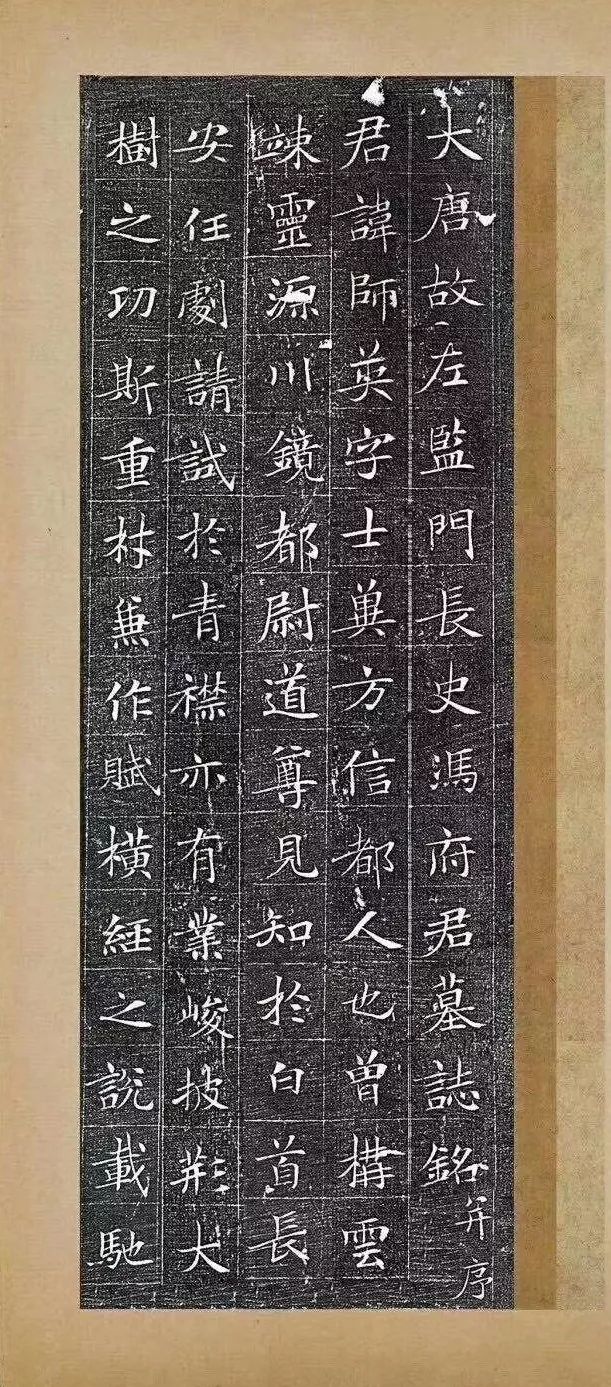 大唐故左監門長史馮府君墓誌銘并序
君諱師英字士龔方信都人也曾構雲
竦靈源川鏡都尉道尊見知於白首長
安任劇請試於青襟亦有業峻披荊大
樹之功斯重材兼作賦橫經之說載馳